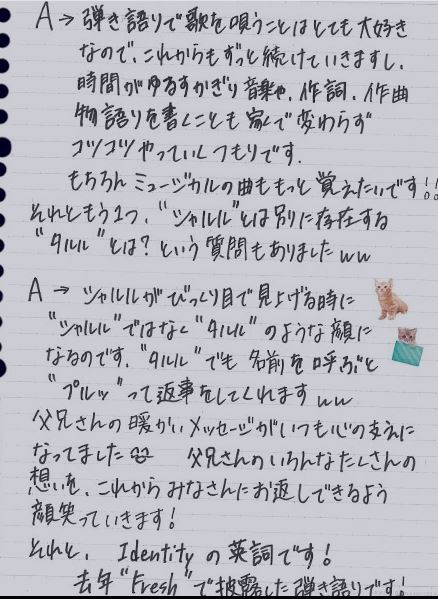 A → 弾き語りで歌を唄うことはとても大好き
なので、これからもずっと続けていきますし、
時間がゆるすかぎり音楽や、作詞、作曲
物語りを書くことも家で変わらず
コツコツやっていくつもりです。
もちろんミュージカルの曲ももっと覚えたいです!!
それともう1つ、"シャルル"とは別に存在する
"タルル"とは?という質問もありましたww
A → シャルルがびっくり目で見上げる時に
"シャルル"ではなく"タルル"のような顔に
なるのです。"タルル"でも名前を呼ぶと
"プルッ"って返事をしてくれますww
父兄さんの暖かいメッセージがいつも心の支えに
なってました 父兄さんのいろんなたくさんの
想いを、これからみなさんにお返しできるよう
顔笑っていきます!
それと、Identityの英詞です!
去年"Fresh"で披露した弾き語りです!